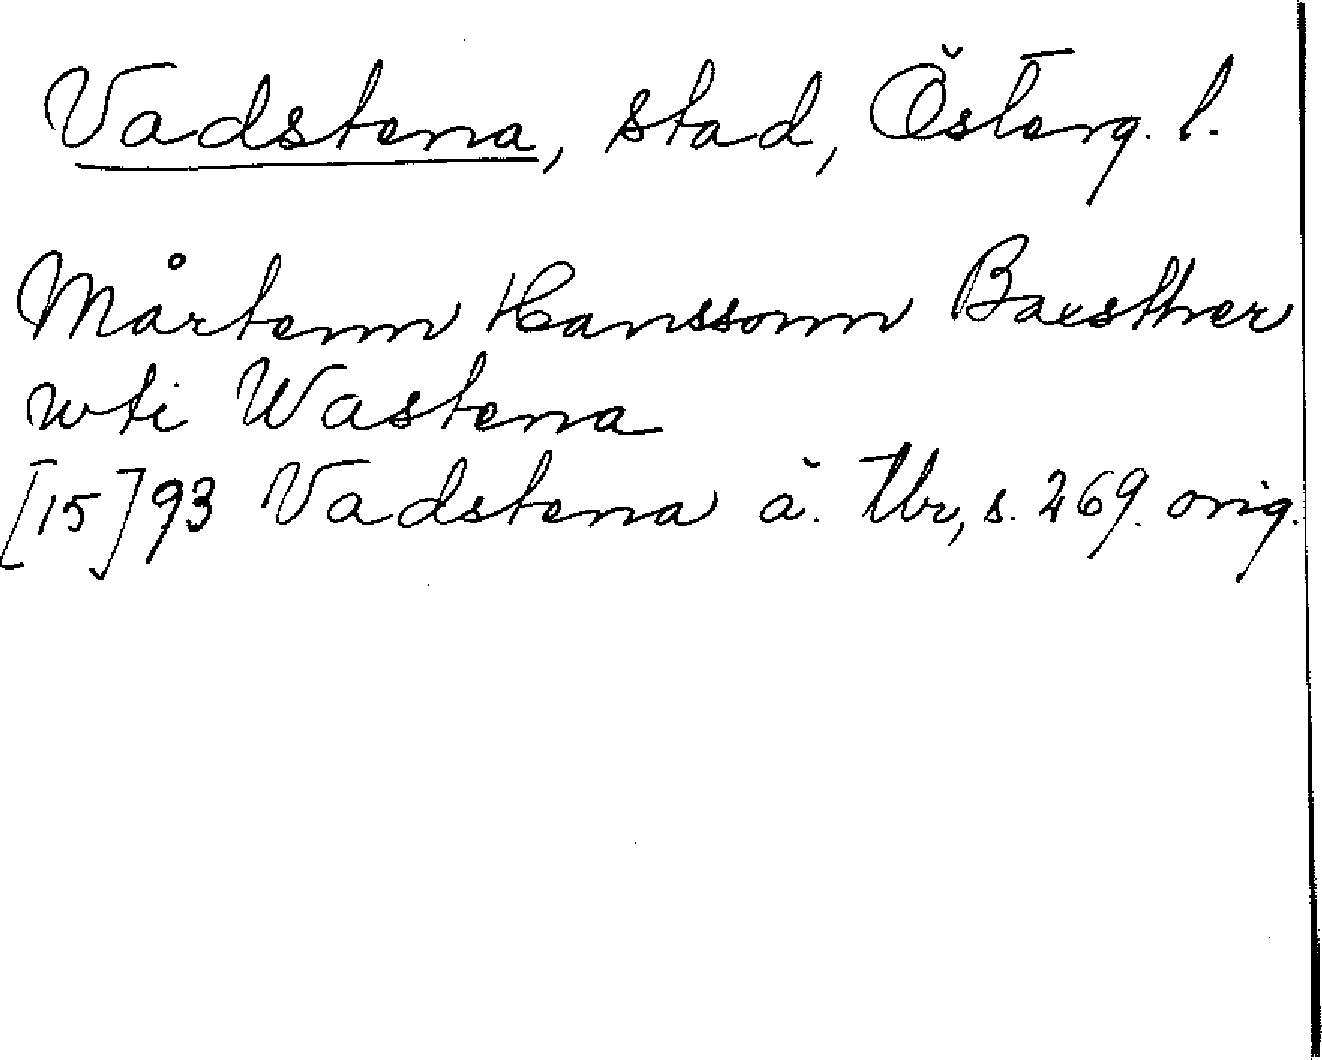 Vadstena, stad, Österg. l.
Mårtenn Hanssonn Baxsther
wti Wastena
[15]93 Vadstena ä. Tbr, s. 269. orig.